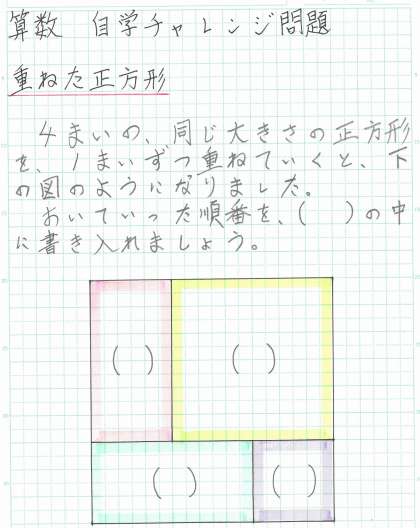 算数 自学チャレンジ問題
重ねた正方形
4まいの、同じ大きさの正方形
を、1まいずつ重ねていくと、下
の図のようになりました。
おいていった順番を、( )の中
に書き入れましょう。
( ) ( )
( ) ( )